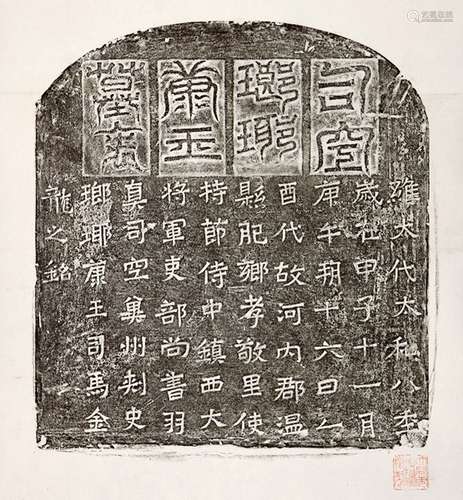 司空
瑯琊
康王
墓表
維大代太和八年
歲在甲子十一月
庚午朔十六日乙
酉代故河内郡温
縣肥鄉孝敬里使
持節侍中鎮西大
將軍吏部尚書羽
真司空冀州刺史
瑯琊康王司馬金
龍之銘